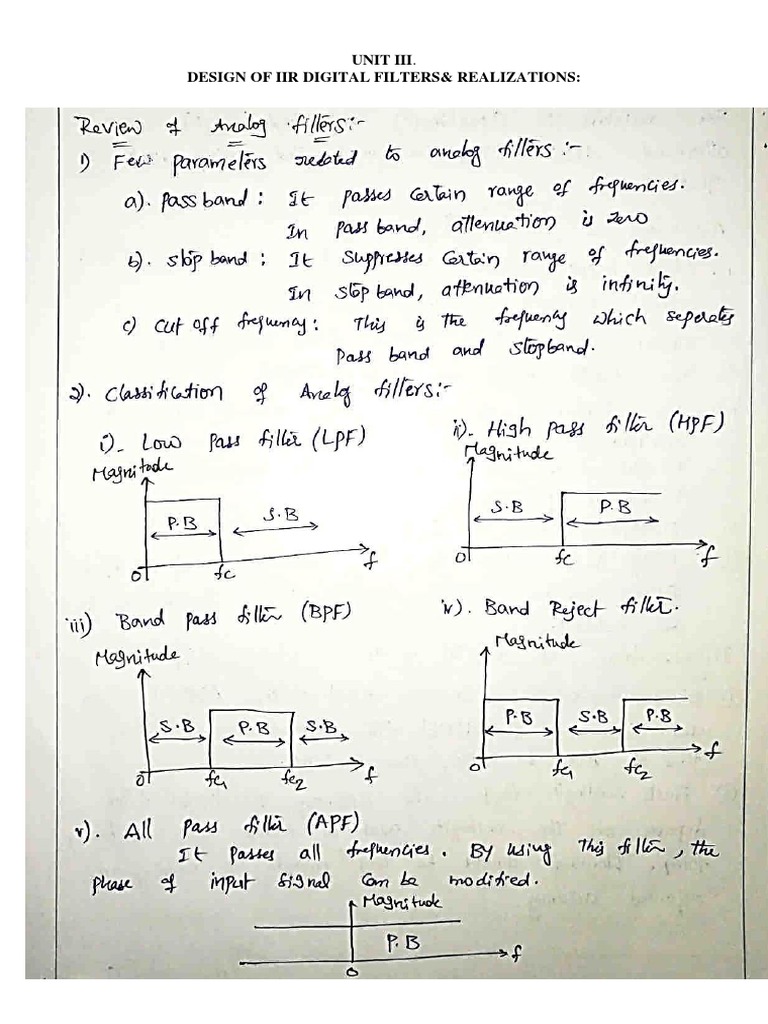 UNIT III.
DESIGN OF IIR DIGITAL FILTERS& REALIZATIONS:
Review of Analog filters:-
1) Few parameters related to analog filters:-
a). Pass band : It passes certain range of frequencies.
In pass band, attenuation is zero
b). stop band : It suppresses certain range of frequencies.
In stop band, attenuation is infinity.
c) cut off frequency : This is the frequency which seperates
Pass band and stopband.
2). Classification of Analog filters:-
i)- Low pass filter (LPF)
Magnitude
P.B
S.B
0
fc
f
ii)- High pass filter (HPF)
Magnitude
S.B
P.B
0
fc
f
iii) Band pass filter (BPF)
Magnitude
S.B
P.B
S.B
0
fc1
fc2
f
iv). Band Reject filter.
Magnitude
P.B
S.B
P.B
0
fc1
fc2
f
v). All pass filter (APF)
It passes all frequencies. By using this filter, the
phase of input signal can be modified.
Magnitude
P.B
f
0